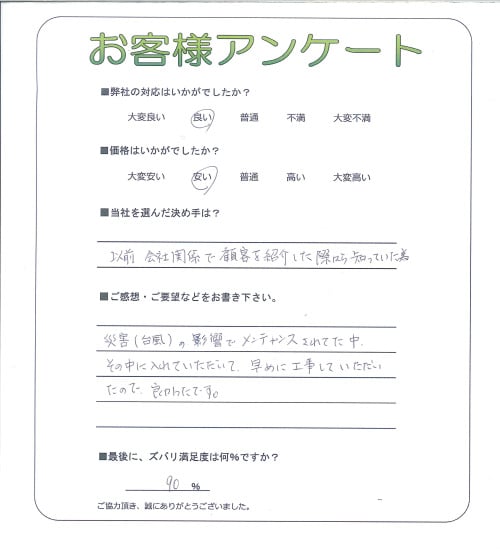 お客様アンケート
■弊社の対応はいかがでしたか？
大変良い 良い 普通 不満 大変不満
■価格はいかがでしたか？
大変安い 安い 普通 高い 大変高い
■当社を選んだ決め手は？
以前 会社関係で顧客を紹介した際から知っていた為
■ご感想・ご要望などをお書き下さい。
災害(台風)の影響でメンテナンスされてた中、
その中に入れていただいて、早めに工事していただい
たので、良かったです。
■最後に、ズバリ満足度は何%ですか？
90 %
ご協力頂き、誠にありがとうございました。